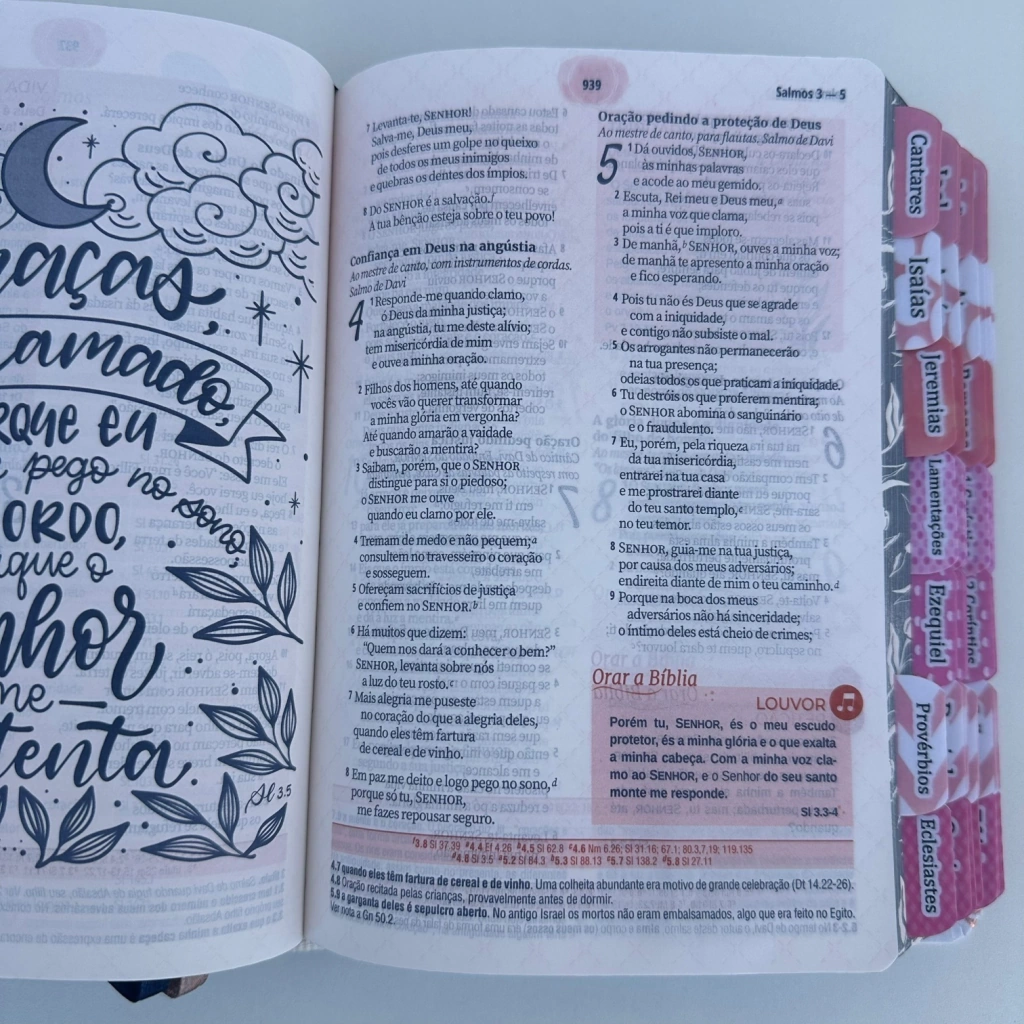 937
raças,
amado,
rque eu
pego no sono;
ORDO,
rque o
nhor
me
tenta.
Sl 3.5
939
Salmos 3 — 5
7 Levanta-te, SENHOR!
Salva-me, Deus meu,
pois desferes um golpe no queixo
de todos os meus inimigos
e quebras os dentes dos ímpios.
8 Do SENHOR é a salvação.
A tua bênção esteja sobre o teu povo!
Confiança em Deus na angústia
Ao mestre de canto, com instrumentos de cordas.
Salmo de Davi
4 1 Responde-me quando clamo,
ó Deus da minha justiça;
na angústia, tu me deste alívio;
tem misericórdia de mim
e ouve a minha oração.
2 Filhos dos homens, até quando
vocês vão querer transformar
a minha glória em vergonha?
Até quando amarão a vaidade
e buscarão a mentira?
3 Saibam, porém, que o SENHOR
distingue para si o piedoso;
o SENHOR me ouve
quando eu clamo por ele.
4 Tremam de medo e não pequem;a
consultem no travesseiro o coração
e sosseguem.
5 Ofereçam sacrifícios de justiça
e confiem no SENHOR.b
6 Há muitos que dizem:
"Quem nos dará a conhecer o bem?"
SENHOR, levanta sobre nós
a luz do teu rosto.c
7 Mais alegria me puseste
no coração do que a alegria deles,
quando eles têm fartura
de cereal e de vinho.
8 Em paz me deito e logo pego no sono,d
porque só tu, SENHOR,
me fazes repousar seguro.
Oração pedindo a proteção de Deus
Ao mestre de canto, para flautas. Salmo de Davi
5 1 Dá ouvidos, SENHOR,
às minhas palavras
e acode ao meu gemido.
2 Escuta, Rei meu e Deus meu,a
a minha voz que clama,
pois a ti é que imploro.
3 De manhã,b SENHOR, ouves a minha voz;
de manhã te apresento a minha oração
e fico esperando.
4 Pois tu não és Deus que se agrade
com a iniquidade,
e contigo não subsiste o mal.
5 Os arrogantes não permanecerão
na tua presença;
odeias todos os que praticam a iniquidade.
6 Tu destróis os que proferem mentira;
o SENHOR abomina o sanguinário
e o fraudulento.
7 Eu, porém, pela riqueza
da tua misericórdia,
entrarei na tua casa
e me prostrarei diante
do teu santo templo,c
no teu temor.
8 SENHOR, guia-me na tua justiça,
por causa dos meus adversários;
endireita diante de mim o teu caminho.d
9 Porque na boca dos meus
adversários não há sinceridade;
o íntimo deles está cheio de crimes;
Orar a Bíblia
LOUVOR
Porém tu, SENHOR, és o meu escudo
protetor, és a minha glória e o que exalta
a minha cabeça. Com a minha voz cla-
mo ao SENHOR, e o Senhor do seu santo
monte me responde.
Sl 3.3-4
f3.8 Sl 37.39 a4.4 Ef 4.26 b4.5 Sl 62.8 c4.6 Nm 6.26; Sl 31.16; 67.1; 80.3,7,19; 119.135
d4.8 Sl 3.5 a5.2 Sl 84.3 b5.3 Sl 88.13 c5.7 Sl 138.2 d5.8 Sl 27.11
4.7 quando eles têm fartura de cereal e de vinho. Uma colheita abundante era motivo de grande celebração (Dt 14.22-26).
4.8 Oração recitada pelas crianças, provavelmente antes de dormir.
5.9 a garganta deles é sepulcro aberto. No antigo Israel os mortos não eram embalsamados, algo que era feito no Egito.
Ver nota a Gn 50.2.
Cantares
Isaías
Jeremias
Lamentações
Ezequiel
Provérbios
Eclesiastes